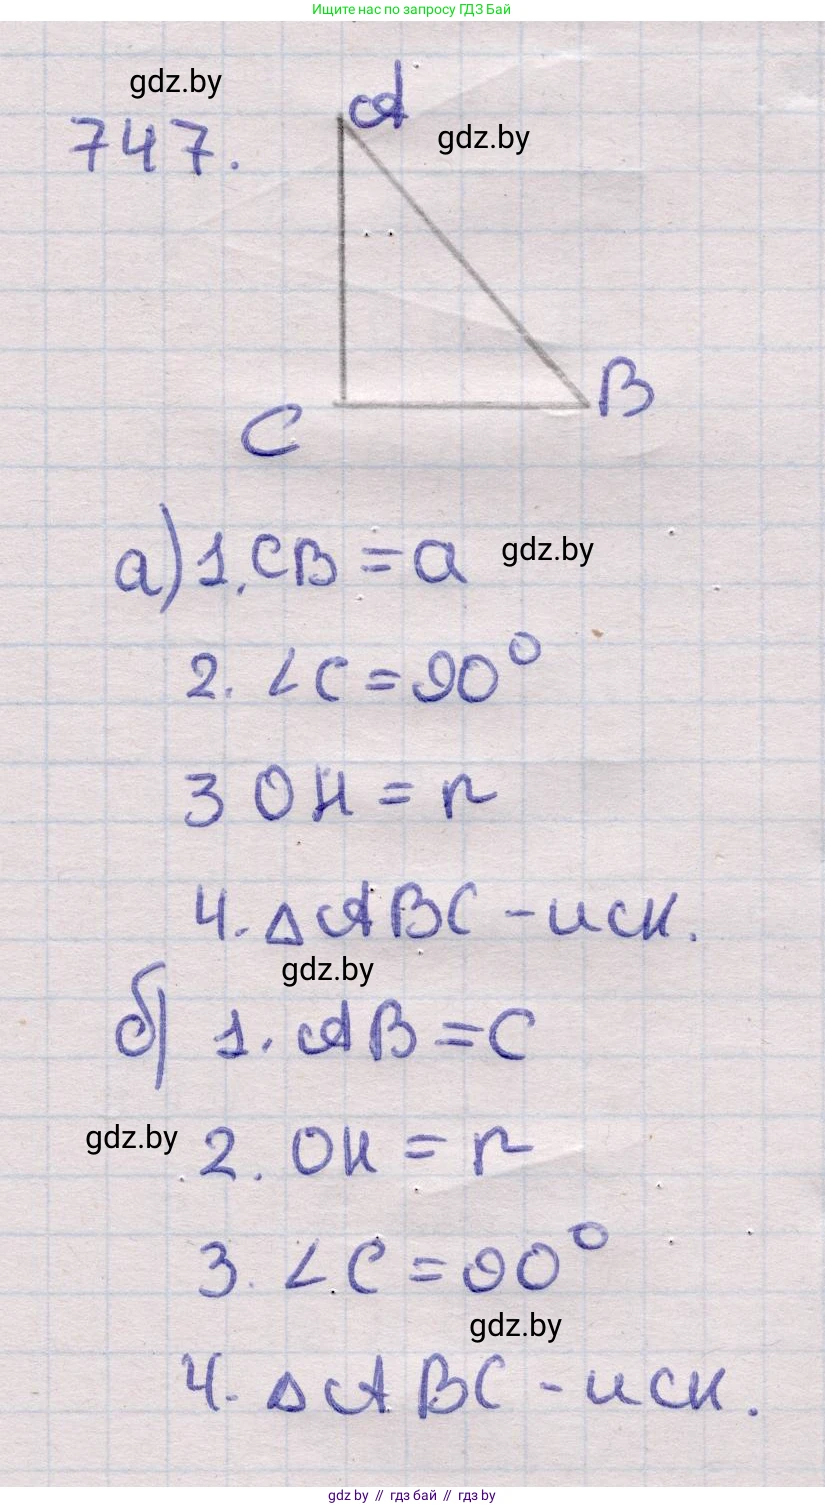 Ищите нас по запросу ГДЗ Бай
gdz.by
747.
A
gdz.by
B
C
а) 1. CB = a
gdz.by
2. ∠C = 90°
3 OH = r
4. △ABC - иск.
gdz.by
б) 1. AB = C
gdz.by
2. OH = r
3. ∠C = 90°
gdz.by
4. △ABC - иск.
gdz.by // гдз бай // гдз by